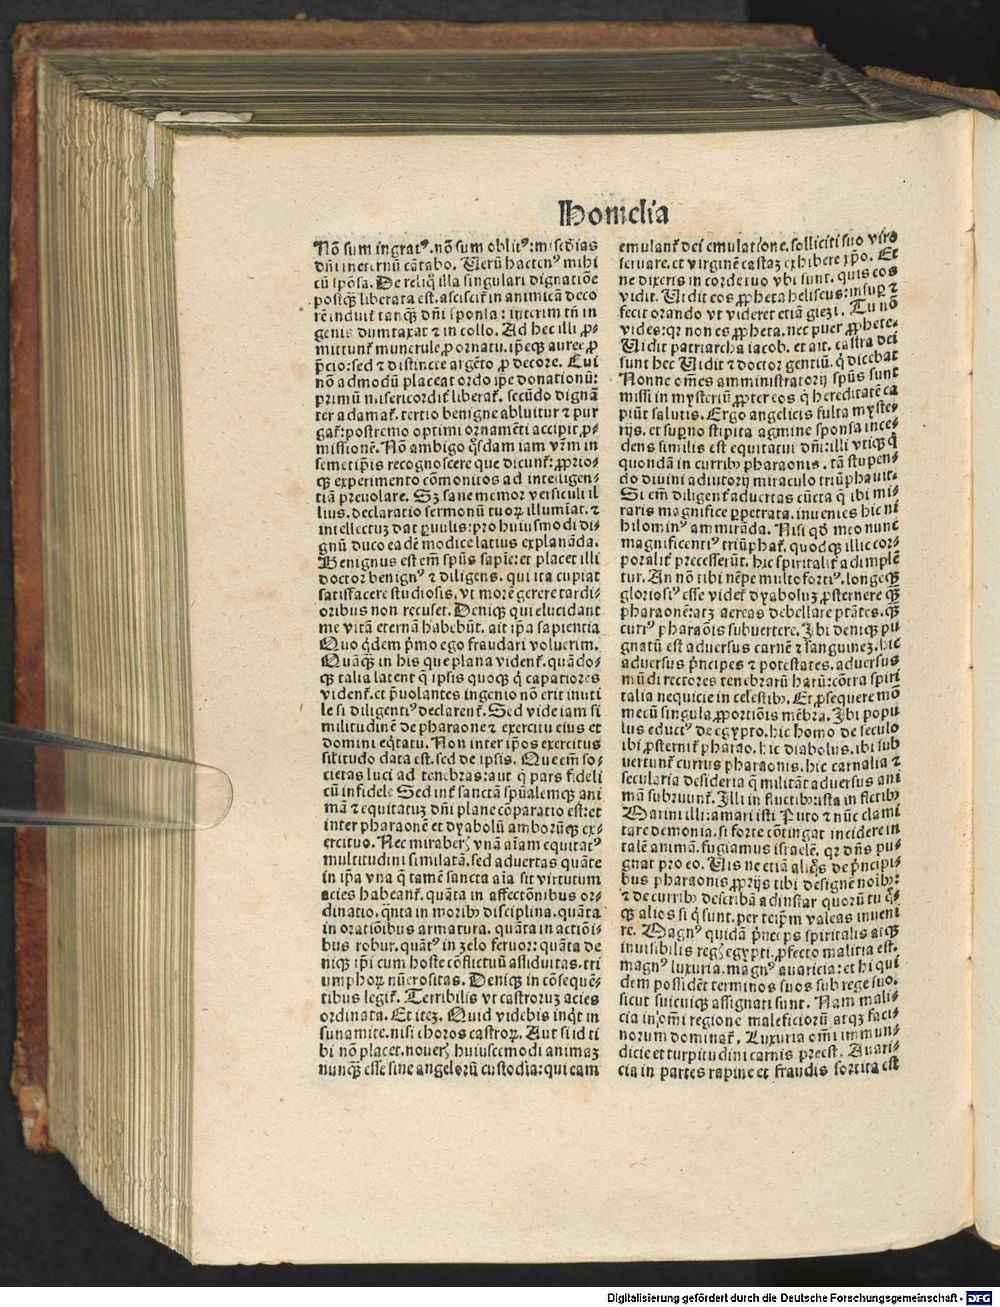 Homelia
Nõ sum ingratꝰ. nõ sum oblitꝰ: miscðias
dñi in eternũ cãtabo. Uerũ hactenꝰ mihi
cũ spõsa. De reliq̃ illa singulari dignatiõe
postq̃ꝫ liberata est. asciscit᷑ in amicicã deco
rẽ induit᷑ tanq̃ꝫ dñi sponsa: interim tñ in
genis dumtaxat ⁊ in collo. Ad hec illi ꝓ⸗
mittunt᷑ munerule ꝓ ornatu. ip̃eqꝫ auree ꝓ
p̃cio: sed ⁊ distincte argẽto ꝓ decore. Cui
nõ admodũ placeat ordo ip̃e donationũ:
primũ misericordit᷑ liberat᷑. secũdo dignã
ter adamat᷑. tertio benigne abluitur ⁊ pur
gat᷑: postremo optimi ornamẽti accipit ꝓ⸗
missionẽ. Nõ ambigo q̃sdam iam vr̃m in
semetip̃is recognoscere que dicunt᷑: ꝓprio⸗
qꝫ experimento cõmonitos ad intelligen⸗
tiã preuolare. Sꝫ sane memor versiculi il
lius. declaratio sermonũ tuoꝝ illumiat. ⁊
intellectuꝫ dat ꝑuulis: pro huiusmodi di⸗
gnũ duco eadẽ modice latius explanãda.
Benignus est em̃ spũs sapĩe: et placet illi
doctor benignꝰ ⁊ diligens. qui ita cupiat
satisfacere studiosis. vt morẽ gerere tardi⸗
oribus non recuset. Deniqꝫ qui elucidant
me vitã eternã habebũt. ait ip̃a sapientia
Quo q̃dem p̃mo ego fraudari voluerim.
Quãq̃ꝫ in his que plana vident᷑. quãdo⸗
qꝫ talia latent q̃ ipsis quoqꝫ q̃ capatiores
vident᷑. et p̃uolantes ingenio nõ erit inuti
le si diligentiꝰ declarent᷑. Sed vide iam si
militudinẽ de pharaone ⁊ exercitu eius et
domini eq̃tatu. Non inter ip̃os exercitus
sil̃itudo data est. sed de ipsis. Que em̃ so⸗
cietas luci ad tenebras: aut q̃ pars fideli
cũ infidele Sed int᷑ sanctã spũalemqꝫ ani
mã ⁊ equitatuꝫ dñi plane cõparatio est: et
inter pharaonẽ et dyabolũ amborũqꝫ ex⸗
ercituo. Nec miraberꝭ vnã aĩam equitatꝰ
multitudini similatã. sed aduertas quãte
in ip̃a vna q̃ tamẽ sancta aĩa sit virtutum
acies habeant᷑. quãta in affectõnibus or⸗
dinatio. q̃nta in moribꝰ disciplina. quãta
in oratiõibus armatura. quãta in actiõi⸗
bus robur. quãtꝰ in zelo feruor: quãta de
niqꝫ ip̃i cum hoste cõflictuũ assiduitas. tri
umphoꝝ nũerositas. Deniqꝫ in cõsequẽ⸗
tibus legit᷑. Terribilis vt castroruꝫ acies
ordinata. Et iteꝫ. Quid videbis inq̃t in
sunamite. nisi choros castroꝝ. Aut si id ti
bi nõ placet. nouerꝭ huiuscemodi animaꝫ
nunqꝫ esse sine angelorũ custodia: qui eam
emulant᷑ dei emulatione. solliciti suo viro
seruare. et virginẽ castaꝫ exhibere xp̃o. Et
ne dixeris in corde tuo vbi sunt. quis eos
vidit. Uidit eos ꝓpheta heliseus: insuꝑ ⁊
fecit orando vt videret etiã giezi. Tu nõ
vides: qꝛ non es ꝓpheta. nec puer ꝓphete⸗
Uidit patriarcha iacob. et ait. castra dei
sunt hec Uidit ⁊ doctor gentiũ. q̃ dicebat
Nonne om̃es amministratorij spũs sunt
missi in mysteriũ ꝓpter eos q̃ hereditatẽ ca
piũt salutis. Ergo angelicis fulta myste⸗
rijs. et suꝑno stipita agmine sponsa ince⸗
dens similis est equitatui dñi: illi vtiqꝫ q̃
quondã in curribꝰ pharaonis. tã stupen⸗
do diuini adiutorij miraculo triũphauit.
Si em̃ diligent᷑ aduertas cũcta q̃ ibi mi⸗
raris magnifice ꝑpetrata. inuenies hic ni
hilominꝰ ammirãda. Nisi qð meo nunc
magnificentiꝰ triũphat᷑. quodqꝫ illic cor⸗
poralit᷑ precesserũt. hic spiritalit᷑ adimplẽ
tur. An nõ tibi nẽpe multo fortiꝰ. longeqꝫ
gloriosiꝰ esse videt᷑ dyaboluꝫ ꝓsternere q̃ꝫ
pharaonẽ: atꝫ aereas debellare ptãtes. q̃ꝫ
currꝰ pharaõis subuertere. Ibi deniqꝫ pu
gnatũ est aduersus carnẽ ⁊ sanguineꝫ. hic
aduersus p̃ncipes ⁊ potestates. aduersus
mũdi rectores tenebrarũ harũ: cõtra spiri
talia nequicie in celestibꝰ. Et ꝓsequere mõ
mecũ singula ꝓportiõis mẽbra. Ibi popu
lus eductꝰ de egypto. hic homo de seculo
ibi ꝓsternit᷑ pharao. hic diabolus. ibi sub
uertunt᷑ currus pharaonis. hic carnalia ⁊
secularia desideria q̃ militãt aduersus ani
mã subruunt᷑. Illi in fluctibꝰ: ista in fletibꝰ
Marini illi: amari isti Puto ⁊ nũc clami
tare demonia. si forte cõtingat incidere in
talẽ animã. fugiamus israelẽ. qꝛ dñs pu⸗
gnat pro eo. Uis ne etiã aliq̃s de p̃ncipi⸗
bus pharaonis ꝓprijs tibi designẽ noĩbꝰ:
⁊ de curribꝰ describã ad instar quorũ tu q̃⸗
qꝫ alios si q̃ sunt. per teip̃m valeas inueni
re. Magnꝰ quidã p̃nceps spiritalis atqꝫ
inuisibilis regꝭ egypti. ꝓfecto malitia est.
magnꝰ luxuria. magnꝰ auaricia: et hi qui
dem possidẽt terminos suos sub rege suo.
sicut suicuiqꝫ assignati sunt. Nam mali⸗
cia in om̃i regione maleficiorũ atqꝫ faci⸗
norum dominat᷑. Luxuria om̃i immun⸗
dicie et turpitudini carnis preest. Auari⸗
cia in partes rapine et fraudis sortita est
Digitalisierung gefördert durch die Deutsche Forschungsgemeinschaft - DFG